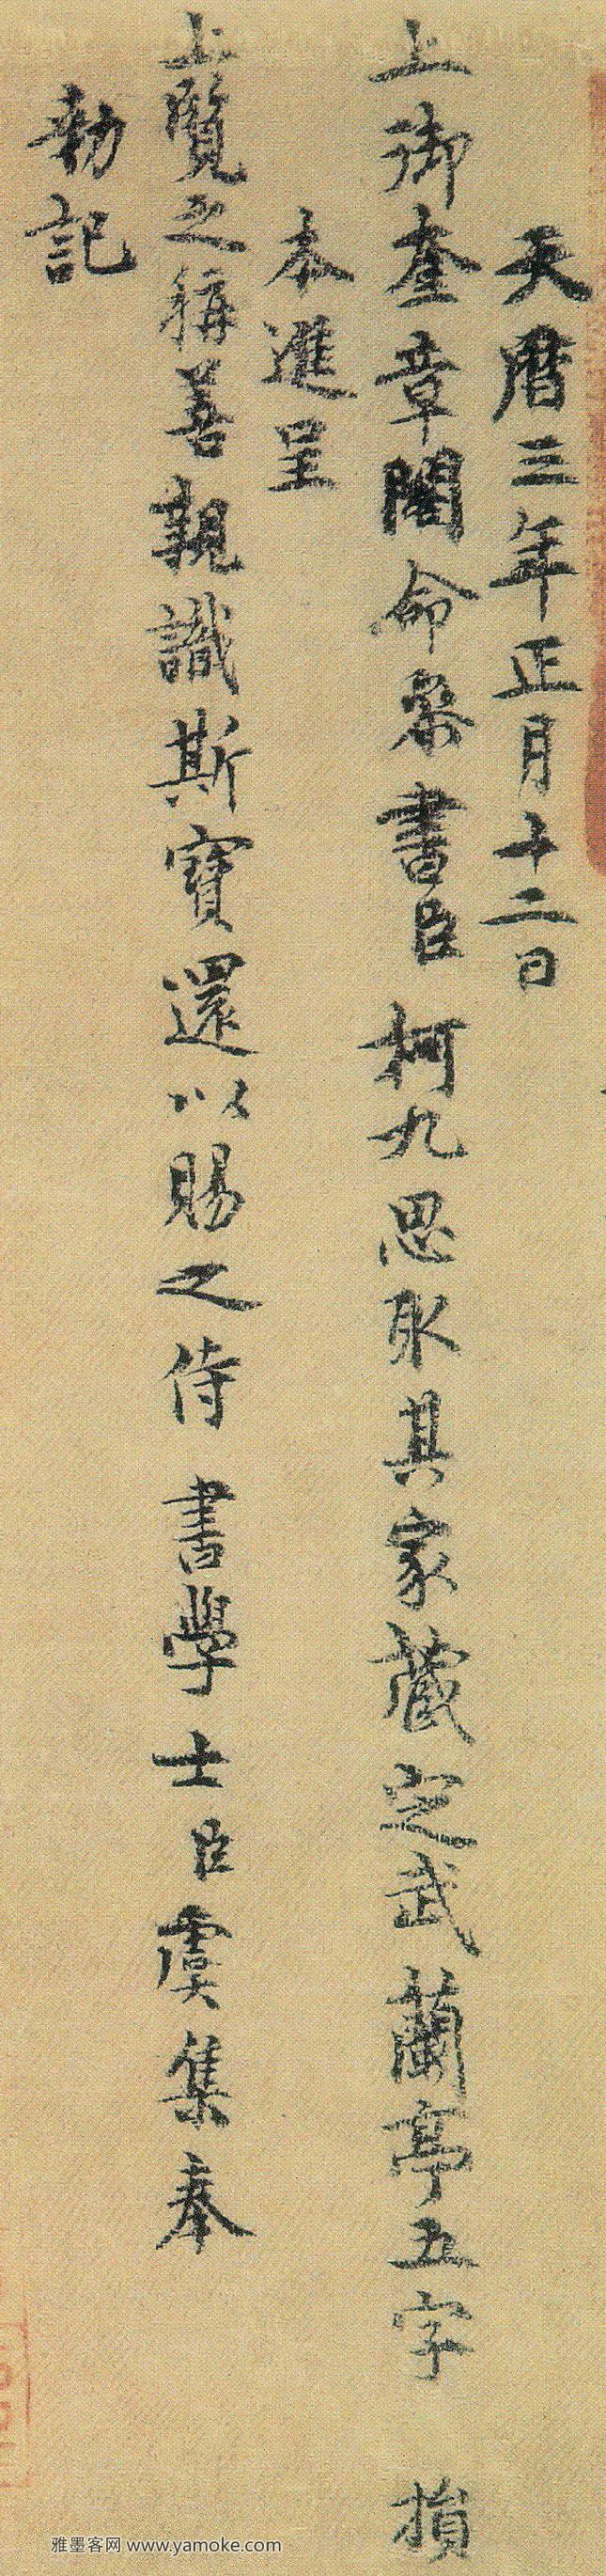 天曆三年正月十二日
上御奎章閣命參書臣柯九思取其家藏定武蘭亭五字損
本進呈
上覽之稱善親識斯寶還以賜之侍書學士臣虞集奉
勅記
雅墨客网 www.yamoke.com